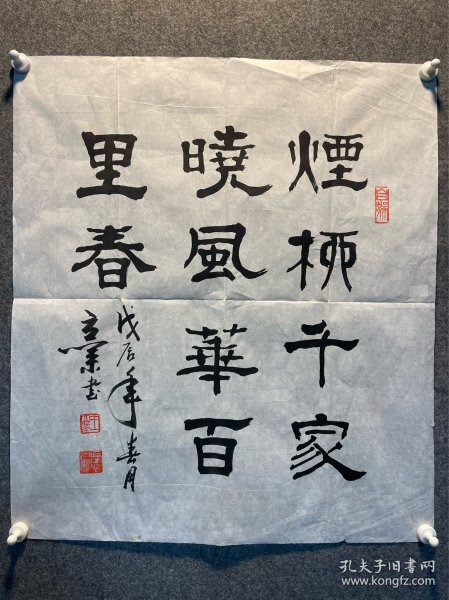 煙柳千家
曉風華百
里春
戊辰年春月
书
孔夫子旧书网
www.kongfz.com